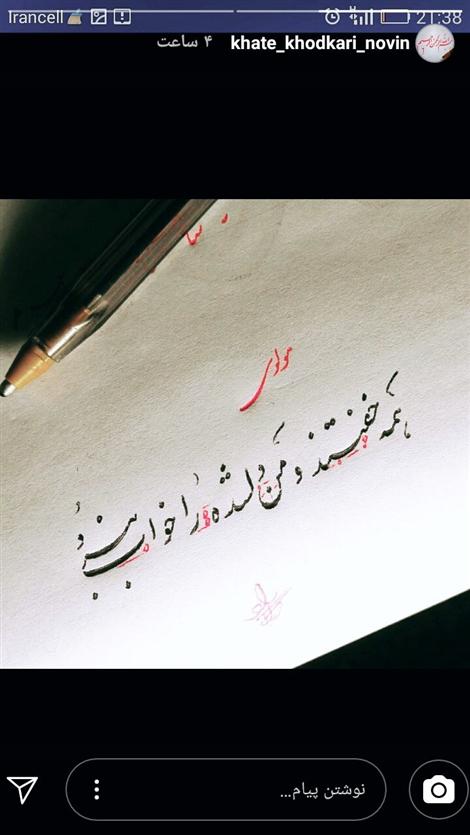 Irancell 21:38
khate_khodkari_novin ۴ ساعت
مولوی
همه خفتند و من دلشده را خواب نبرد
نوشتن پیام...